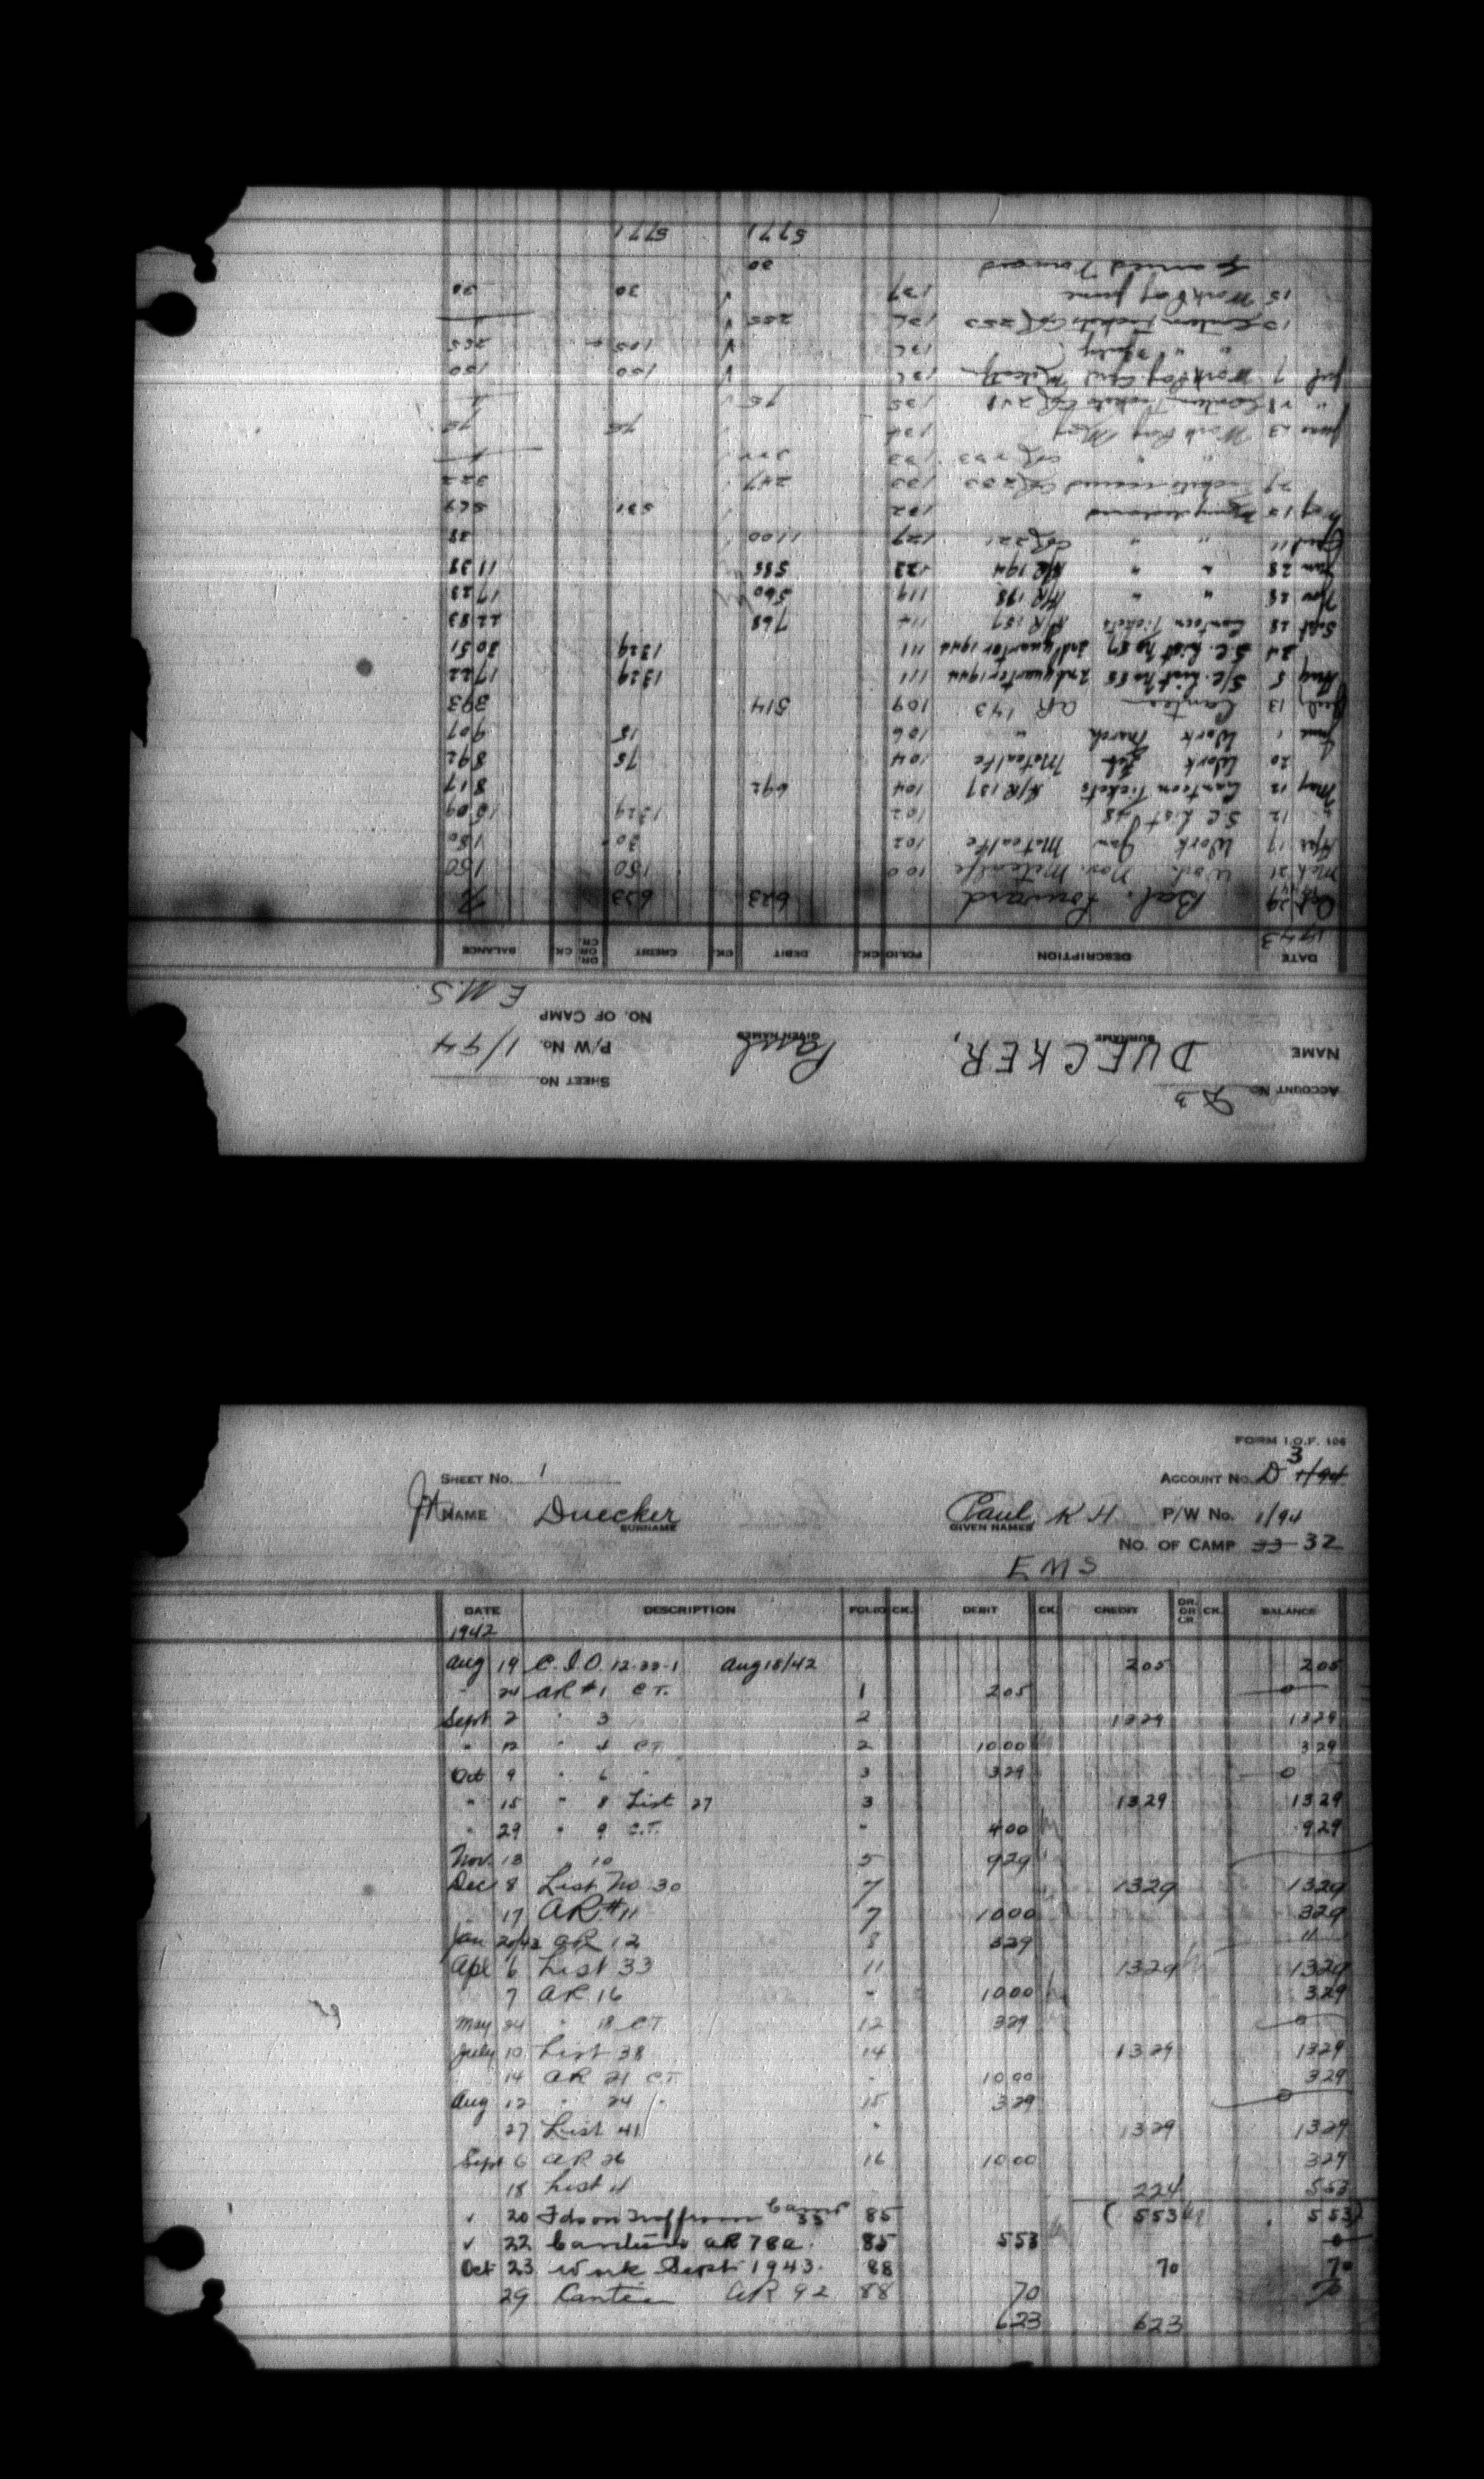 ACCOUNT No. D 3
SHEET No.
NAME DUECKER, Paul P/W No. 1/94
SURNAME GIVEN NAMES
NO. OF CAMP
E.M.S
DATE DESCRIPTION FOLIO CK. DEBIT CK. CREDIT DR. OR CR. CK. BALANCE
1943
Oct 29 Bal. Forward 623 623
Mch 21 Work Nov. Metcalfe 100 150 150
Apr 17 Work Jan Metcalfe 102 30 180
" 12 S.C. List 48 102 1329 1509
May 12 Canteen Tickets A/R 137 104 692 817
20 Work Feb Metcalfe 104 75 892
June 1 Work March " 106 15 907
July 13 Canteen AR 143 109 514 393
Aug 5 S/C. List No 55 2nd quarter 1944 111 1329 1722
S.C. List No 57 3rd quarter 1944 111 1329 3051
Sept 28 Canteen Tickets A/R 157 114 768 2283
Nov 28 " " A/R 178 119 560 1723
Jan 28 " " A/R 194 123 585 1138
April 11 " " 221 127 1100 38
May 15 132 531 569
29 Tickets issued 133 247 322
" " 133 322
June 23 Work Pay May 134 75 75
" 28 Canteen Tickets 135 75
July 7 Work Pay 136 150 150
" " 136 105 255
10 Canteen Tickets 136 255
15 Work Pay June 137 30 30
Carried Forward 30
5771 5771
FORM I.O.F. 106
SHEET No. 1 ACCOUNT No. D 3 1/94
NAME Duecker Paul K H P/W No. 1/94
SURNAME GIVEN NAMES
No. OF CAMP 33 32
E M S
DATE DESCRIPTION FOLIO CK. DEBIT CK. CREDIT DR. OR CR. CK. BALANCE
1942
Aug 19 C.I.O. 12-33-1 Aug 18/42 205 205
" 24 AR #1 C.T. 1 205 0
Sept 2 " 3 2 1329 1329
" 12 " 4 CT 2 1000 329
Oct 9 " 6 " 3 329 0
" 15 " 8 List 27 3 1329 1329
" 29 " 9 C.T. " 400 929
Nov. 13 10 5 929
Dec 8 List No 30 7 1329 1329
17 AR #11 7 1000 329
Jan 20/43 AR 12 8 329 "
Apl 6 List 33 11 1329 1329
7 AR 16 " 1000 329
May 24 " 18 CT 12 329 0
July 10 List 38 14 1329 1329
14 AR 21 CT " 1000 329
Aug 12 " 24 " 15 329 0
27 List 41 " 1329 1329
Sept 6 AR 26 16 1000 329
18 List 4 224 553
✓ 20 Camp 33 85 (553 553)
✓ 22 Canteen AR 78a. 85 553 0
Oct 23 Work Sept 1943. 88 70 70
29 Canteen AR 92 88 70
623 623